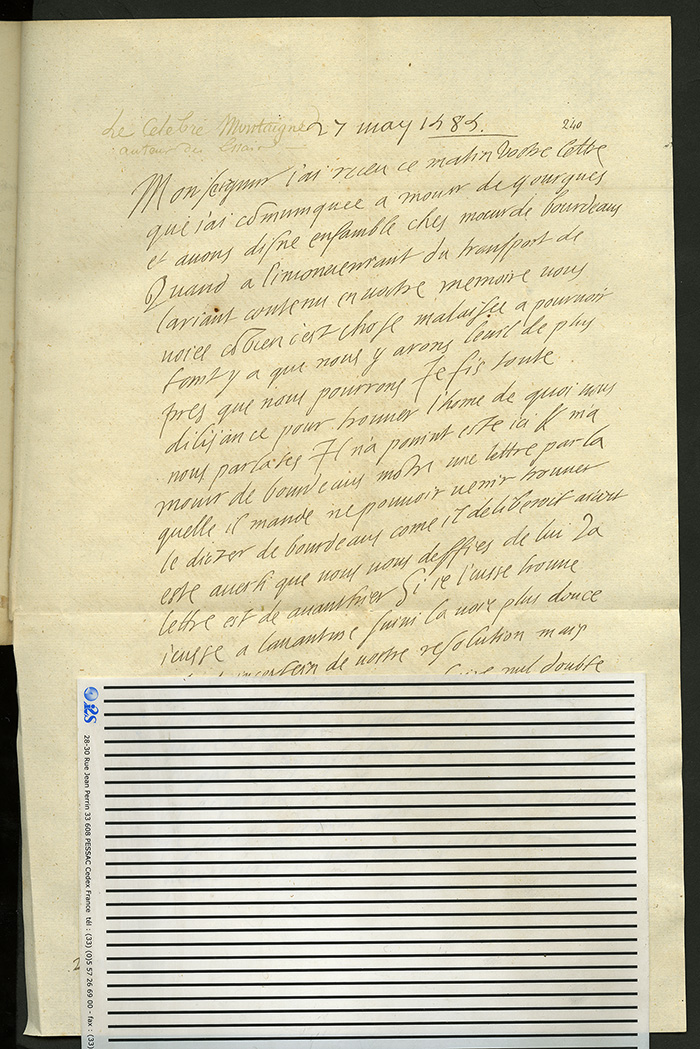 Le Celebre Montaigne
auteur des Essais
27 may 1585.
240
Monseigneur J'ai receu ce matin vostre lettre
que j'ai comuniquee a monsr de gourgues
et avons disne ensamble ches monsr de bourdeaus
Quand a l'inconveniant du transport de
l'arjant contenu en vostre memoire vous
voiez combien c'est chose malaisee a pourvoir
tant y a que nous y arons l'euil de plus
pres que nous pourrons Je fis toute
dilijance pour trouver l'home de quoi vous
nous parlates Il n'a pouint este ici & m'a
monsr de bourdeaus montre une lettre par la
quelle il mande ne pouvoir venir trouver
le dict sr de bourdeaus come il deliberoit aiant
este averti que vous vous deffies de lui La
lettre est de avanthier Si je l'eusse trouve
j'eusse a l'avanture suivi la voie plus douce
incertein de vostre resolution mais
nul doubte
i2S
28-30 Rue Jean Perrin 33 608 PESSAC Cedex France tél : (33) (0)5 57 26 69 00 - fax : (33)
2